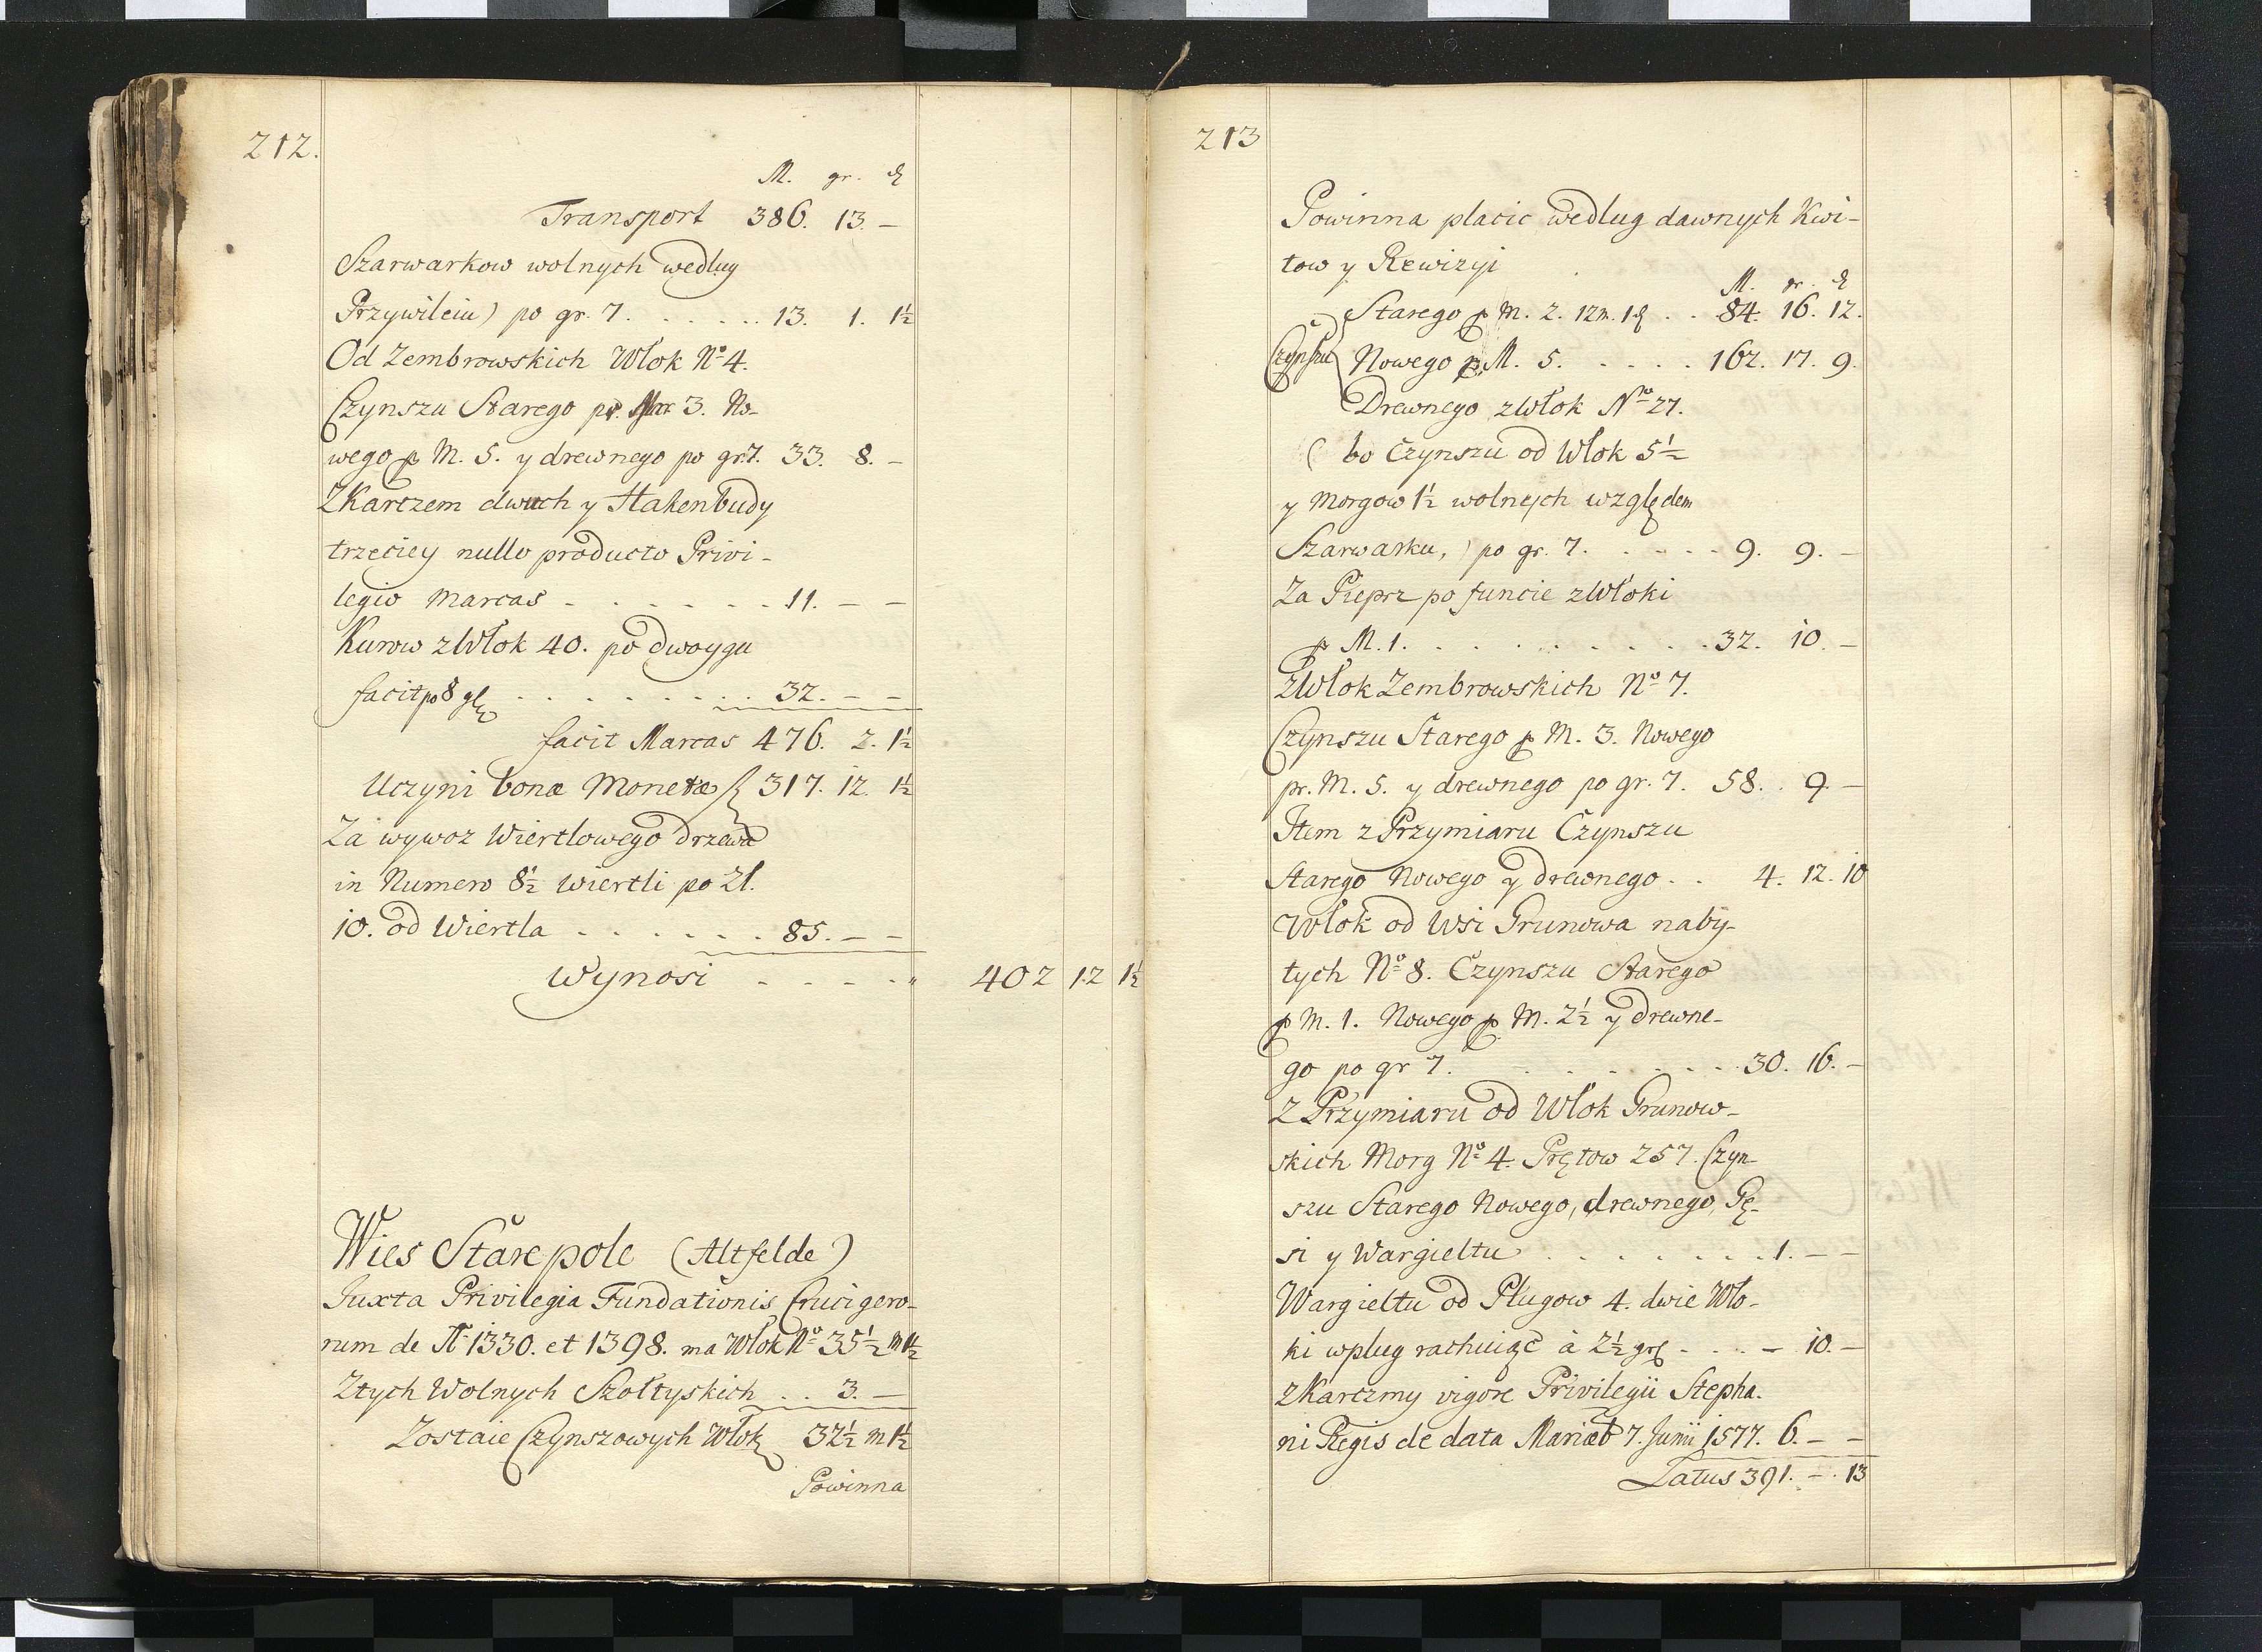 212.
M. gr. ₰
Transport 386. 13. –
Szarwarkow wolnych według
Przywileiu) po gr. 7. . . . . . 13. 1. 1½
Od Zembrowskich Włok No 4.
Czynszu Starego pr. Mar 3. No-
wego p M. 5. y drewnego po gr. 7. 33. 8. –
Z Karczem dwuch y Hakenbudy
trzeciey nullo producto Privi-
legio Marcas . . . . . . 11. – –
Kurow z Włok 40. po dwoygu
facit po 8 gl . . . . . . . . 32. – –
facit Marcas 476. 2. 1½
Uczyni bonæ Monetæ 317. 12. 1½
Za wywoz Wiertlowego drzewa
in Numero 8½ wiertli po Zł.
10. od Wiertla . . . . . . 85. – –
Wynosi . . . . 402 12 1½
Wies Starepole (Altfelde)
Iuxta Privilegia Fundationis Crucigero-
rum de Ao 1330. et 1398. ma Włok No 35½ m 1½
Z tych Wolnych Szołtyskich . . 3. –
Zostaie Czynszowych Włok 32½ m 1½
Powinna
213
Powinna placic według dawnych Kwi-
tow y Rewizyi
M. gr. ₰
Czynszu
Starego p M. 2. 12 1₰ . . 84. 16. 12.
Nowego p. M. 5. . . . . 162. 17. 9.
Drewnego z Włok No 27.
( bo Czynszu od Włok 5½
y Morgow 1½ wolnych względem
Szarwarku,) po gr. 7. . . . . 9. 9. –
Za Pieprz po funcie z Włoki
p M. 1. . . . . . . . . . 32. 10. –
z Włok Zembrowskich No 7.
Czynszu Starego p M. 3. Nowego
pr. M. 5. y drewnego po gr. 7. 58. 9. –
Item z Przymiaru Czynszu
Starego Nowego y drewnego . . 4. 12. 10
Włok od Wsi Grunowa naby-
tych No 8. Czynszu Starego
p M. 1. Nowego p. M. 2½ y drewne-
go po gr 7. . . . . . . 30. 16. –
Z Przymiaru od Włok Grunow-
skich Morg No 4. Prętow 257. Czyn-
szu Starego Nowego, drewnego, Gę-
si y Wargieltu . . . . . . . 1. – –
Wargieltu od Pługow 4. dwie Wło-
ki wpług rachuiąc à 2½ gr . . . – 10. –
z Karczmy vigore Privilegii Stepha-
ni Regis de data Mariæb 7. Junii 1577. 6. – –
Latus 391. – 13